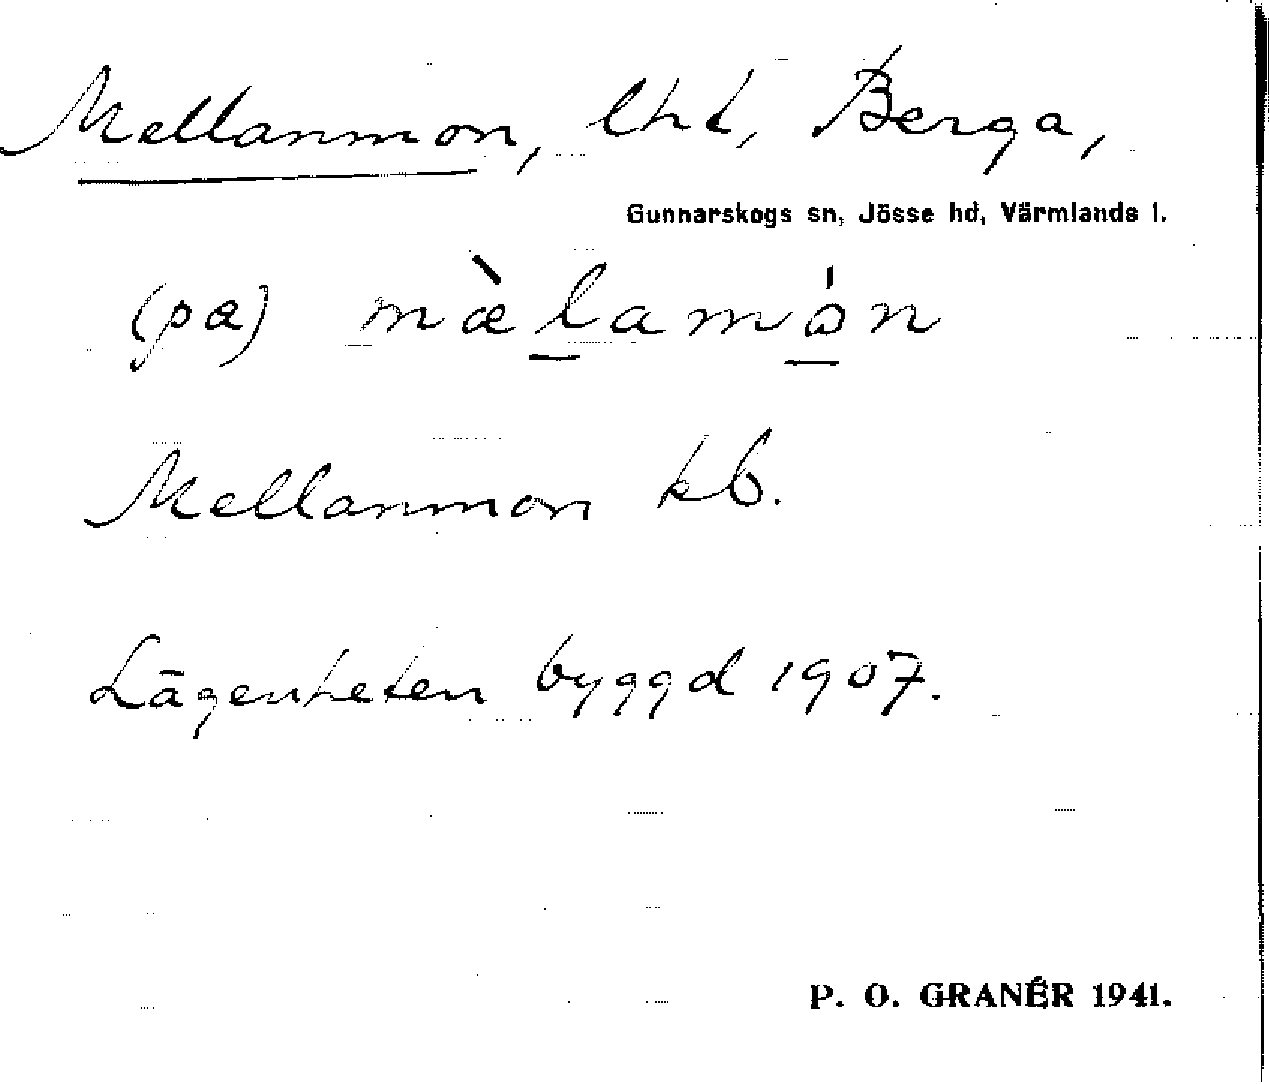 Mellanmon, lht, Berga,
Gunnarskogs sn, Jösse hd, Värmlands l.
(pa) mæ̀lamón
Mellanmon kb.
Lägenheten byggd 1907.
P. O. GRANÉR 1941.